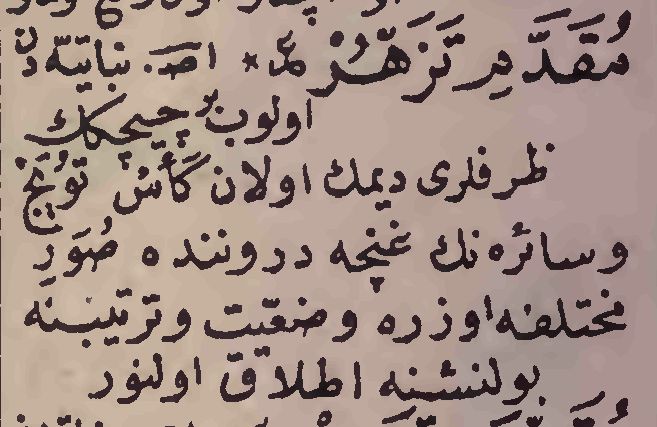 مُقَدَّمِ تَزَهُّرْ * اصـ. نباتيّه دن
اولوب بر چيچكك
ظرفلرى ديمك اولان كَأْس تُوَيْج
وسائره نك غنچه دروننده صُوَرِ
مختلفه اوزره وضعيّت وترتيبنه
بولنشنه اطلاق اولنور